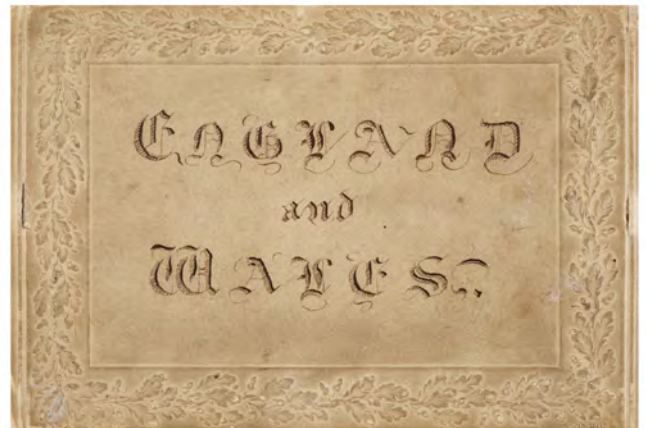 ENGLAND
and
WALES.